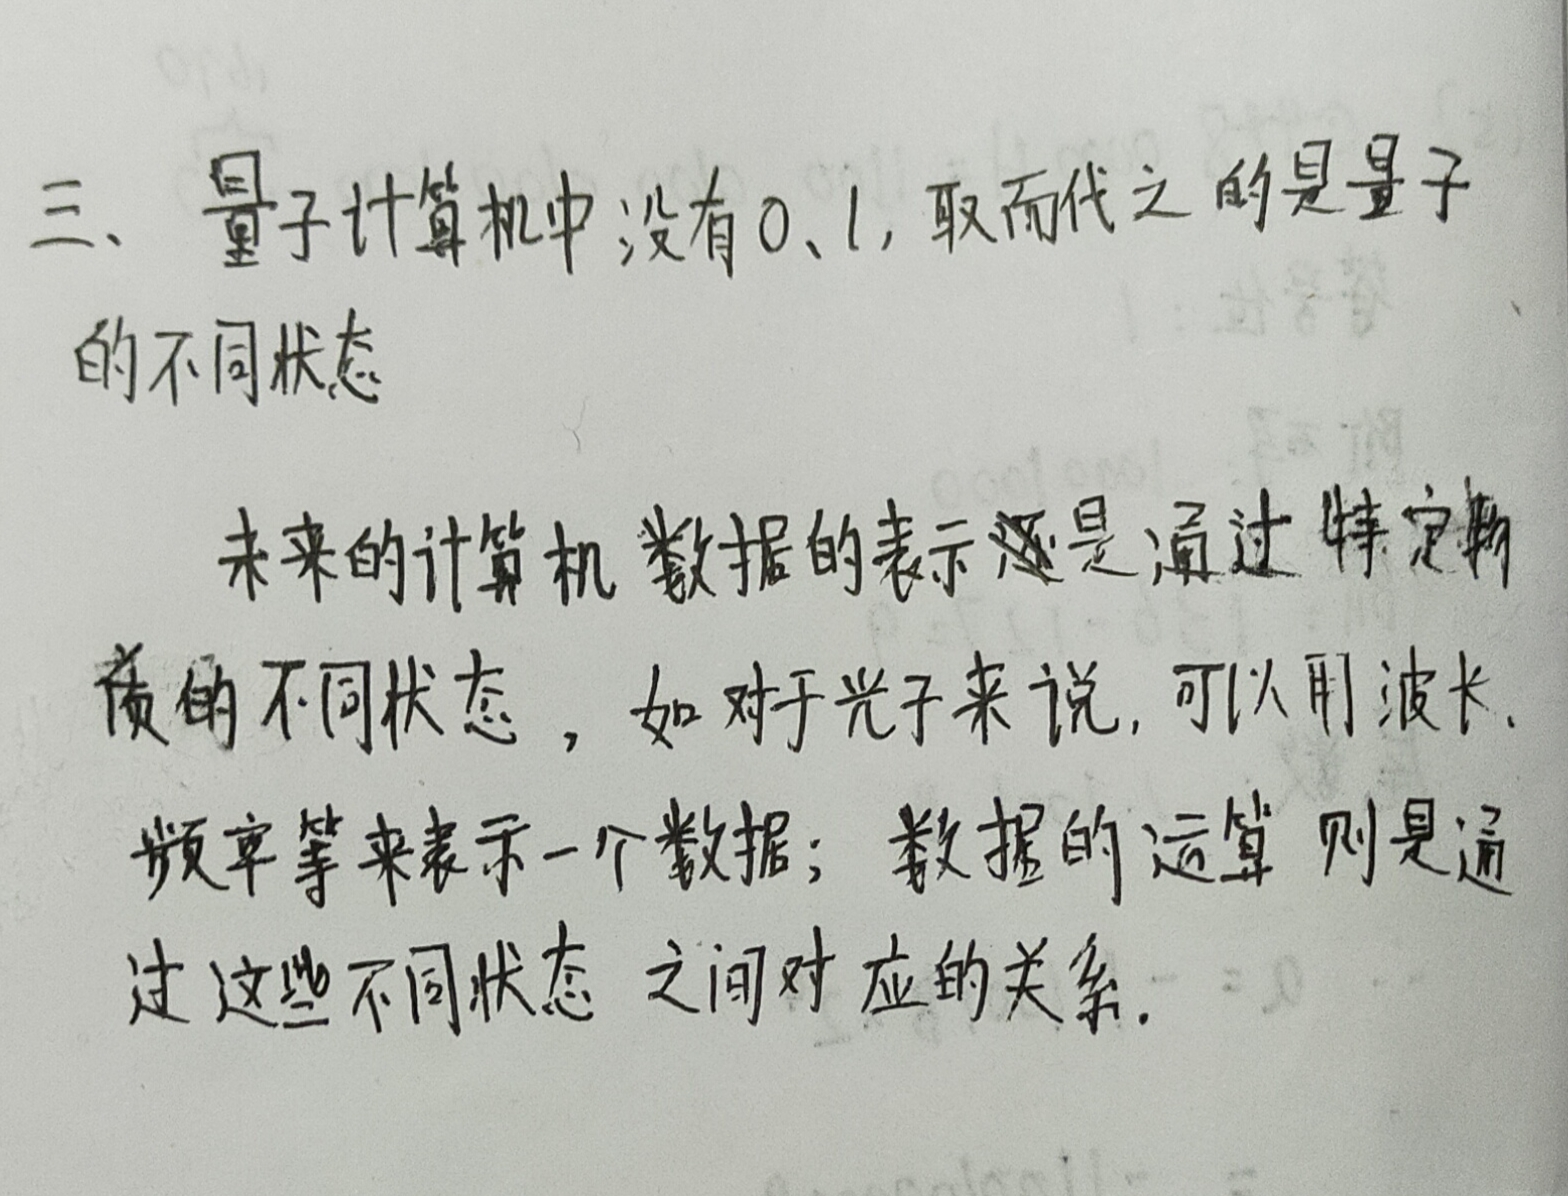 三、量子计算机中没有0、1, 取而代之的是量子
的不同状态
未来的计算机数据的表示还是通过特定物
质的不同状态，如对于光子来说, 可以用波长、
频率等来表示一个数据; 数据的运算则是通
过这些不同状态之间对应的关系.